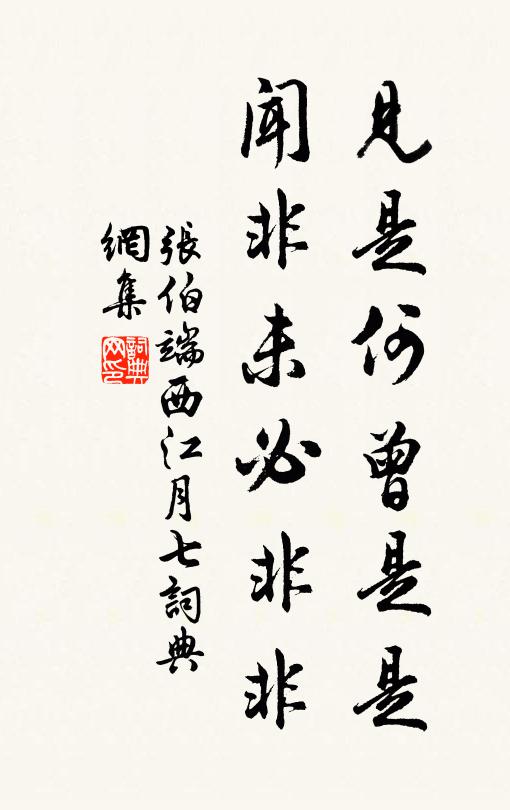 見是何曾是是
聞非未必非非
張伯端西江月七詞典
網集
詞典網印